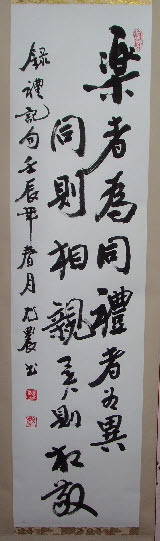 樂者為同禮者為異
同則相親異則相敬
錄禮記句壬辰年春月